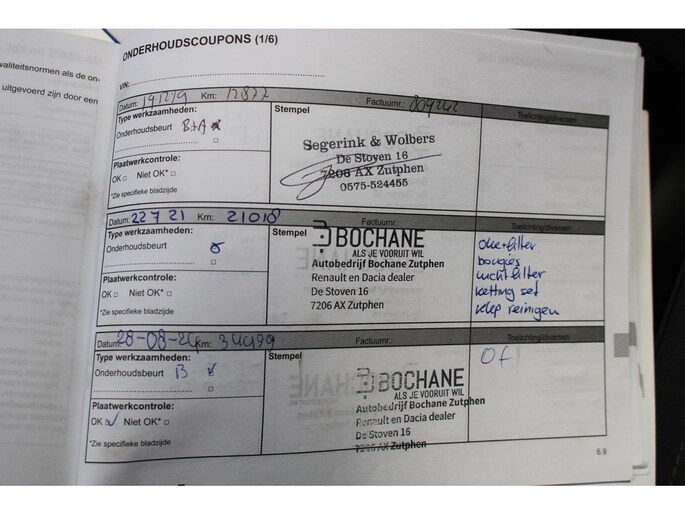 ONDERHOUDSCOUPONS (1/6)
waliteitsnormen als de on-
uitgevoerd zijn door een
VIN:
Datum: 191219 Km: 12877 Factuurnr.: 809242
Type werkzaamheden: Stempel Toelichting/diversen
Onderhoudsbeurt B+A
Segerink & Wolbers
De Stoven 16
7206 AX Zutphen
0575-524455
Plaatwerkcontrole:
OK □ Niet OK* □
*Zie specifieke bladzijde
Datum: 22 7 21 Km: 21018 Factuurnr.:
Type werkzaamheden: Stempel Toelichting/diversen
Onderhoudsbeurt
BOCHANE
ALS JE VOORUIT WIL
Autobedrijf Bochane Zutphen
Renault en Dacia dealer
De Stoven 16
7206 AX Zutphen
olie+filter
bougies
luchtfilter
ketting set
klep reinigen
Plaatwerkcontrole:
OK □ Niet OK* □
*Zie specifieke bladzijde
Datum: 28-08-24 Km: 34499 Factuurnr.:
Type werkzaamheden: Stempel Toelichting/diversen
Onderhoudsbeurt B
BOCHANE
ALS JE VOORUIT WIL
Autobedrijf Bochane Zutphen
Renault en Dacia dealer
De Stoven 16
7206 AX Zutphen
Of
Plaatwerkcontrole:
OK Niet OK* □
*Zie specifieke bladzijde
6.9